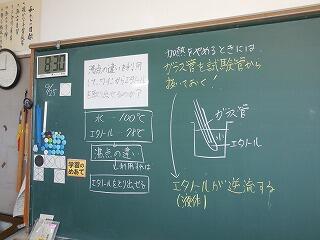 8:30
沸点の違いを利用
して、ワインからエタノール
を取り出せるのか?
水…100℃
エタノール…78℃
沸点の違い
を利用すれば
エタノールをとり出せる
学習の
めあて
加熱をやめるときには、
ガラス管を試験管から
抜いておく!
ガラス管
エタノール
エタノールが逆流する
(液体)